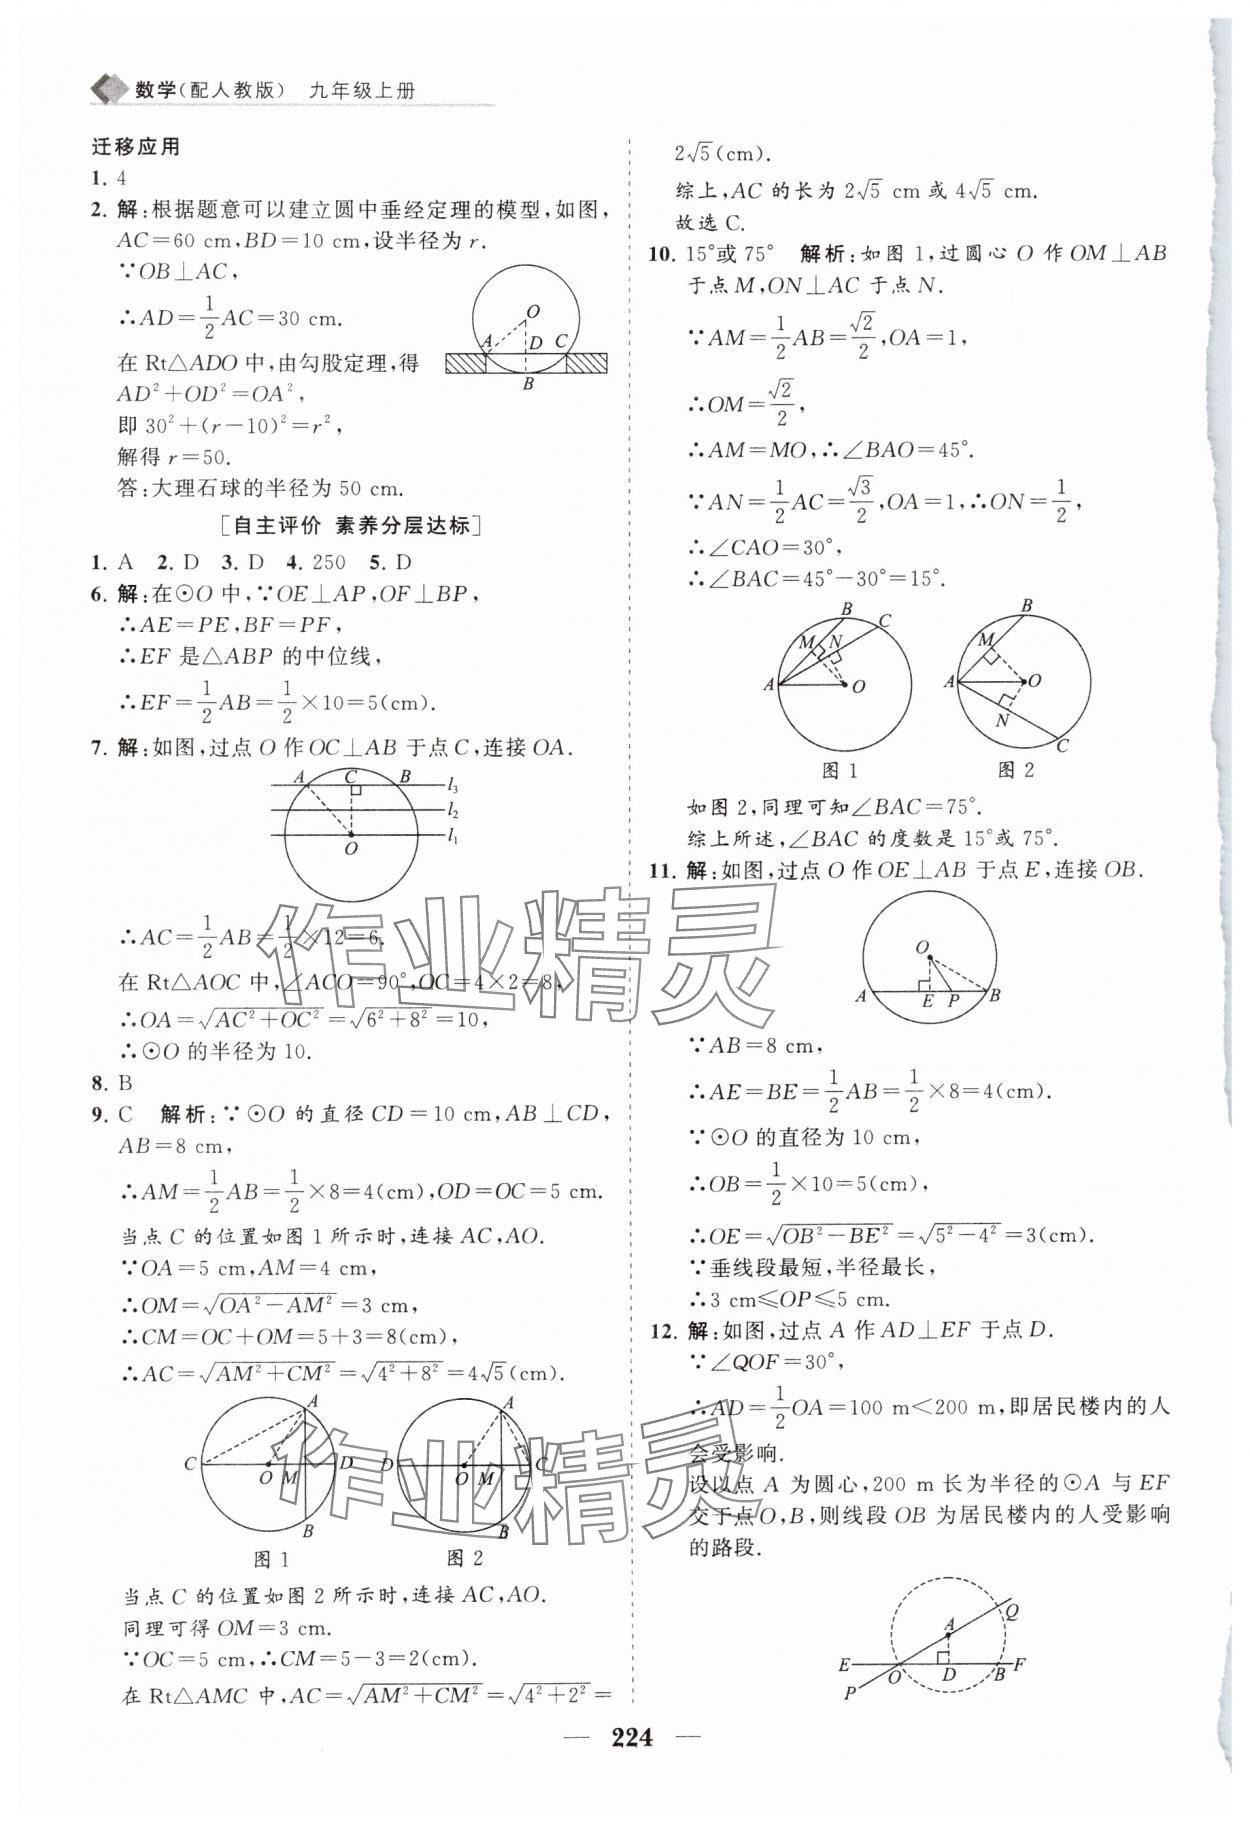 数学(配人教版) 九年级上册
迁移应用
1. 4
2. 解:根据题意可以建立圆中垂径定理的模型,如图,
AC=60 cm,BD=10 cm,设半径为 r.
∵OB⊥AC,
∴AD=1/2AC=30 cm.
在 Rt△ADO 中,由勾股定理,得
AD²+OD²=OA²,
即 30²+(r-10)²=r²,
解得 r=50.
答:大理石球的半径为 50 cm.
O
A D C
B
[自主评价 素养分层达标]
1. A 2. D 3. D 4. 250 5. D
6. 解:在⊙O 中,∵OE⊥AP,OF⊥BP,
∴AE=PE,BF=PF,
∴EF 是△ABP 的中位线,
∴EF=1/2AB=1/2×10=5(cm).
7. 解:如图,过点 O 作 OC⊥AB 于点 C,连接 OA.
A C B l₃
l₂
l₁
O
∴AC=1/2AB=1/2×12=6.
在 Rt△AOC 中,∠ACO=90°,OC=4×2=8,
∴OA=√(AC²+OC²)=√(6²+8²)=10,
∴⊙O 的半径为 10.
8. B
9. C 解析:∵⊙O 的直径 CD=10 cm,AB⊥CD,
AB=8 cm,
∴AM=1/2AB=1/2×8=4(cm),OD=OC=5 cm.
当点 C 的位置如图 1 所示时,连接 AC,AO.
∵OA=5 cm,AM=4 cm,
∴OM=√(OA²-AM²)=3 cm,
∴CM=OC+OM=5+3=8(cm),
∴AC=√(AM²+CM²)=√(4²+8²)=4√5(cm).
A A
C O M D D O M C
B B
图 1 图 2
当点 C 的位置如图 2 所示时,连接 AC,AO.
同理可得 OM=3 cm.
∵OC=5 cm,∴CM=5-3=2(cm).
在 Rt△AMC 中,AC=√(AM²+CM²)=√(4²+2²)=
2√5(cm).
综上,AC 的长为 2√5 cm 或 4√5 cm.
故选 C.
10. 15°或 75° 解析:如图 1,过圆心 O 作 OM⊥AB
于点 M,ON⊥AC 于点 N.
∵AM=1/2AB=√2/2,OA=1,
∴OM=√2/2,
∴AM=MO,∴∠BAO=45°.
∵AN=1/2AC=√3/2,OA=1,∴ON=1/2,
∴∠CAO=30°,
∴∠BAC=45°-30°=15°.
B C B
M N M
A O A O
N
C
图 1 图 2
如图 2,同理可知∠BAC=75°.
综上所述,∠BAC 的度数是 15°或 75°.
11. 解:如图,过点 O 作 OE⊥AB 于点 E,连接 OB.
O
A E P B
∵AB=8 cm,
∴AE=BE=1/2AB=1/2×8=4(cm).
∵⊙O 的直径为 10 cm,
∴OB=1/2×10=5(cm),
∴OE=√(OB²-BE²)=√(5²-4²)=3(cm).
∵垂线段最短,半径最长,
∴3 cm≤OP≤5 cm.
12. 解:如图,过点 A 作 AD⊥EF 于点 D.
∵∠QOF=30°,
∴AD=1/2OA=100 m<200 m,即居民楼内的人
会受影响.
设以点 A 为圆心,200 m 长为半径的⊙A 与 EF
交于点O,B,则线段 OB 为居民楼内的人受影响
的路段.
Q
A
E O D B F
P
作业精灵
作业精灵
— 224 —